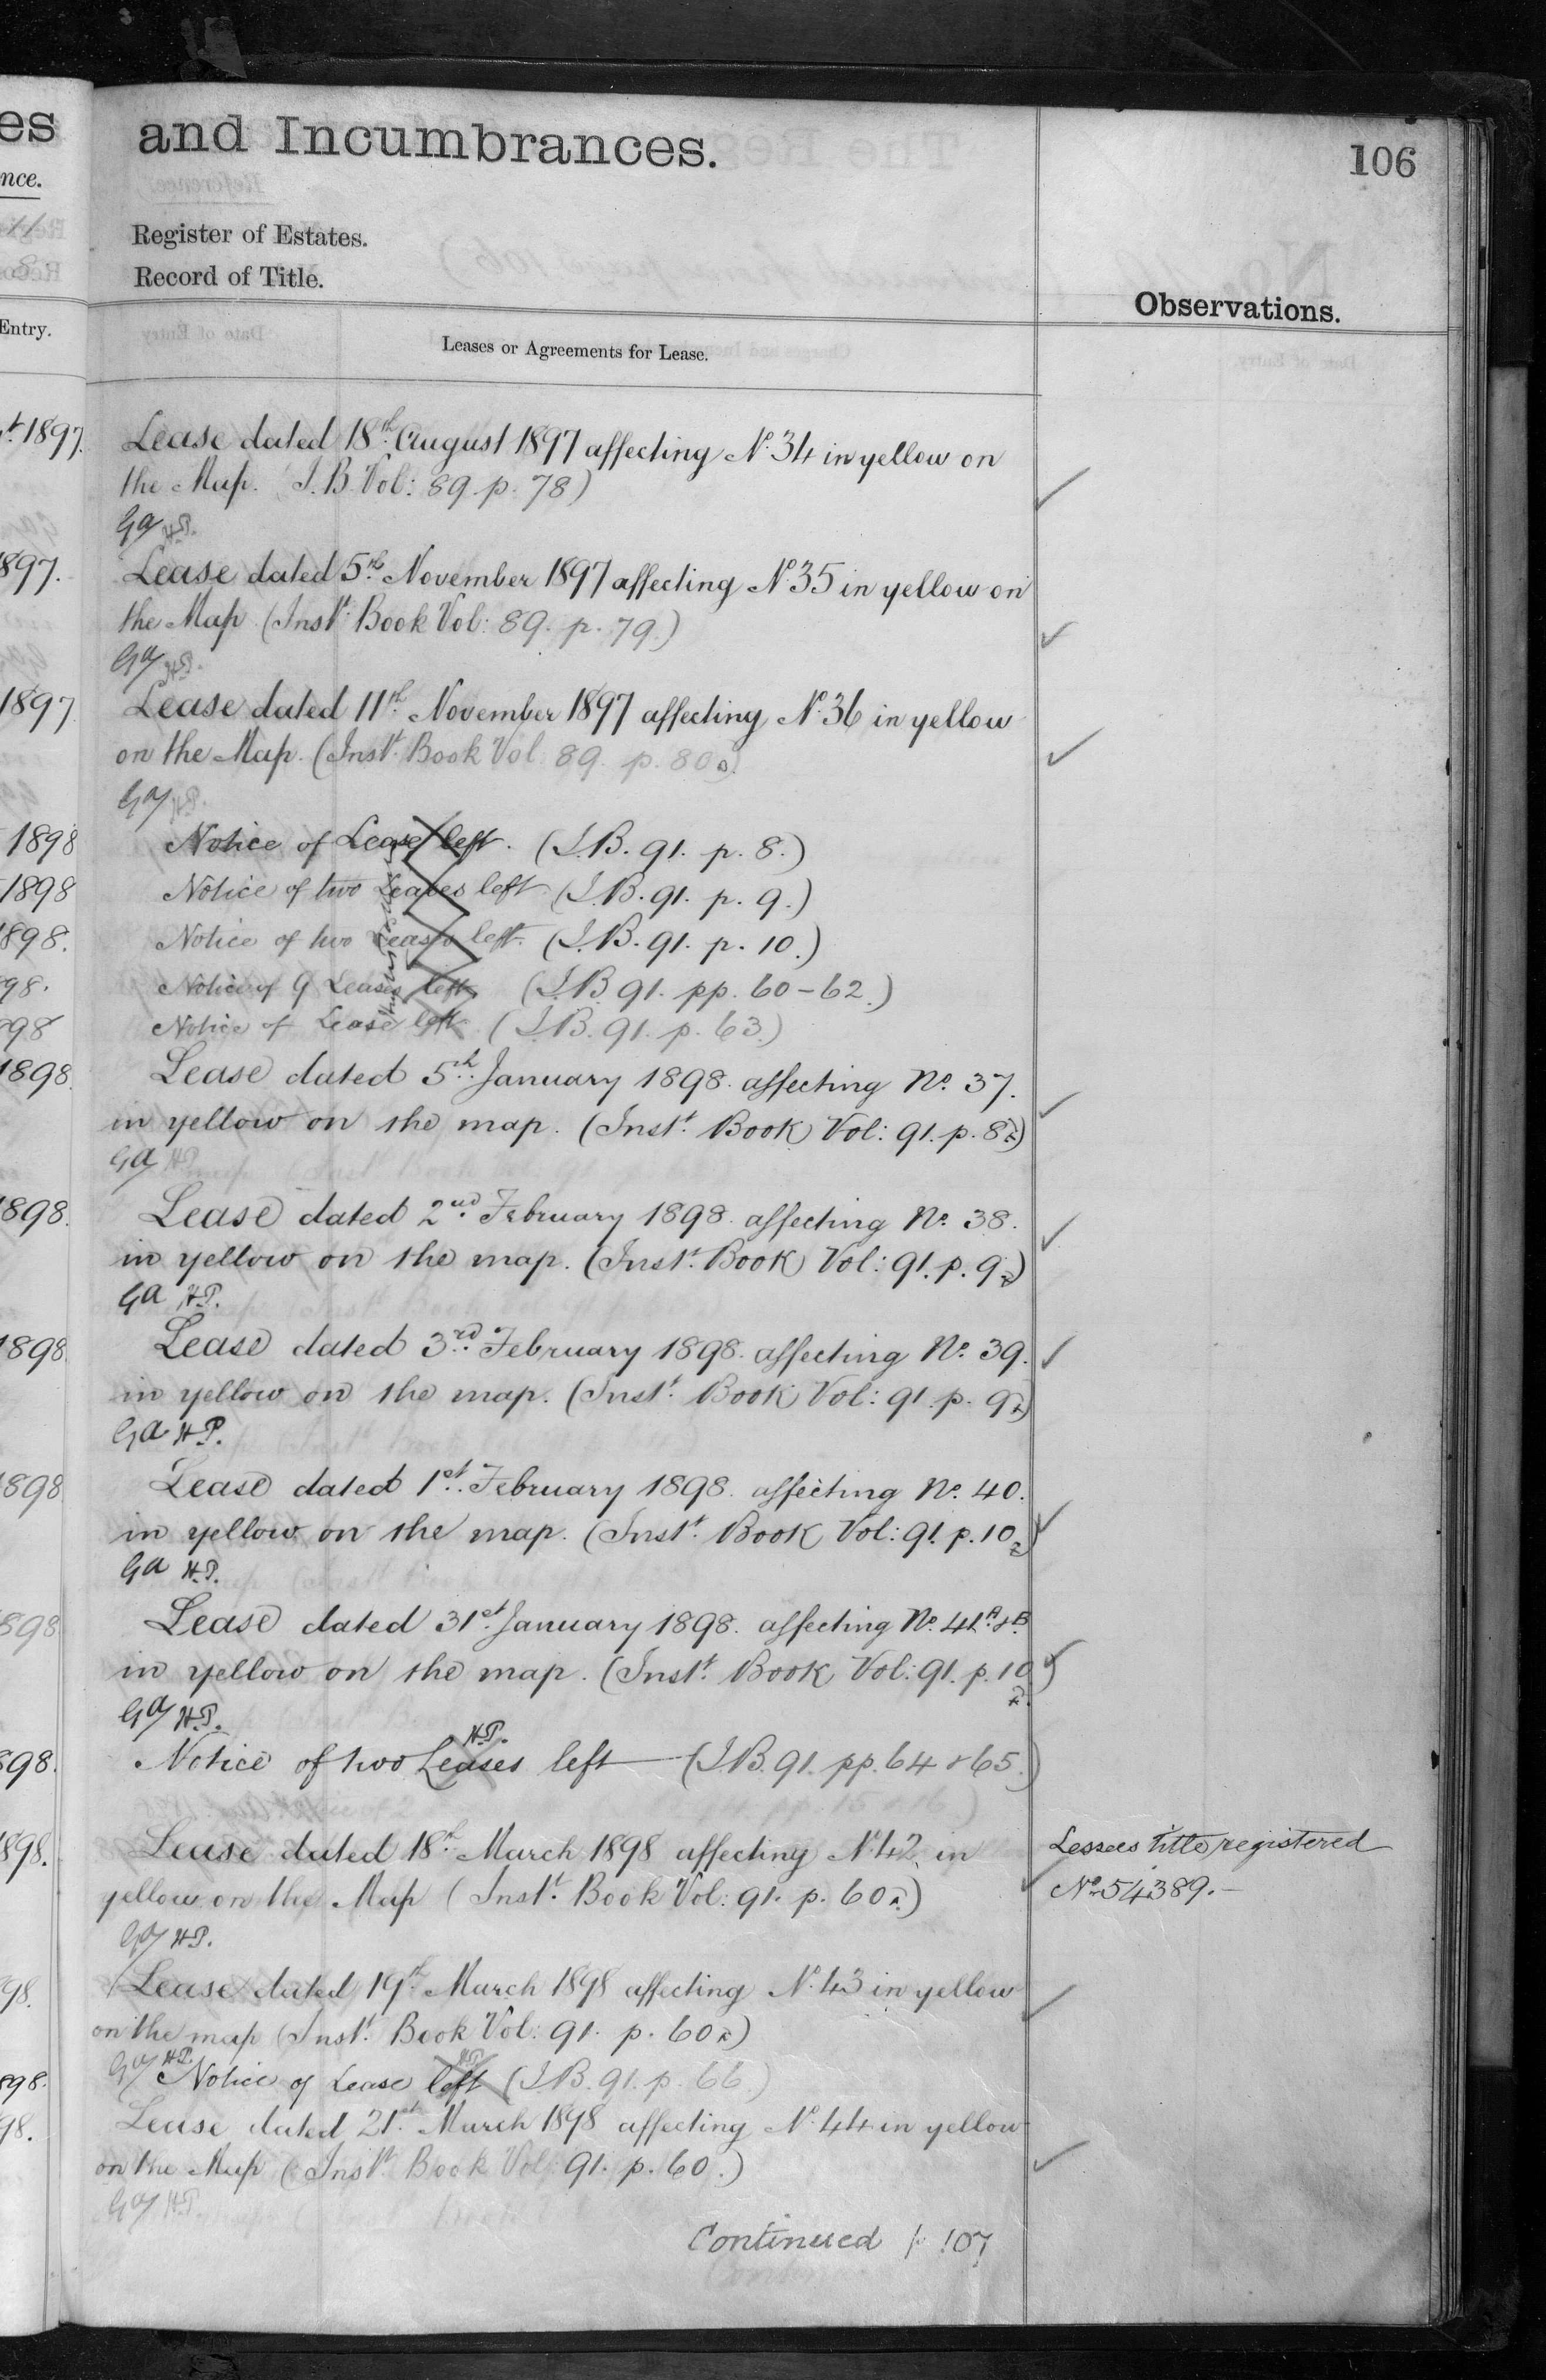 es
and Incumbrances.
106
nce.
Register of Estates.
Record of Title.
Observations.
Entry.
Leases or Agreements for Lease.
t. 1897.
Lease dated 18th. August 1897 affecting No. 34 in yellow on
the Map. (I.B. Vol: 89. p. 78)
GA H.P.
897.
Lease dated 5th. November 1897 affecting No. 35 in yellow on
the Map. (Inst. Book Vol: 89. p. 79.)
GA H.P.
1897
Lease dated 11th. November 1897 affecting No. 36 in yellow
on the Map. (Inst. Book Vol. 89. p. 80a)
GA H.P.
1898
Notice of Lease left. (I.B. 91. p. 8.)
1898
Notice of two Leases left (I.B. 91. p. 9.)
898.
Notice of two Leases left. (I.B. 91. p. 10.)
98.
Notice of 9 Leases left (I.B. 91. pp. 60-62.)
98
Notice of Lease left (I.B. 91. p. 63.)
1898.
Lease dated 5th. January 1898. affecting No. 37.
in yellow on the map. (Inst. Book Vol: 91. p. 8a)
GA H.P.
898.
Lease dated 2nd. February 1898. affecting No. 38.
in yellow on the map. (Inst. Book Vol: 91. p. 9a)
GA H.P.
1898
Lease dated 3rd. February 1898. affecting No. 39.
in yellow on the map. (Inst. Book Vol: 91. p. 9a)
GA H.P.
898
Lease dated 1st. February 1898. affecting No. 40.
in yellow on the map. (Inst. Book Vol: 91. p. 10a)
GA H.P.
898
Lease dated 31st. January 1898. affecting No. 41A & B
in yellow on the map. (Inst. Book Vol: 91. p. 10a)
GA H.P.
H.P.
898.
Notice of two Leases left (I.B. 91. pp. 64 & 65.)
898.
Lease dated 18th. March 1898 affecting No. 42 in
Lessees title registered
yellow on the Map (Inst. Book Vol: 91. p. 60a)
No. 54389.
GA H.P.
98.
Lease dated 19th. March 1898 affecting No. 43 in yellow
on the map (Inst. Book Vol: 91. p. 60a)
GA H.P.
898.
Notice of Lease left (I.B. 91. p. 66.)
98.
Lease dated 21st. March 1898 affecting No. 44 in yellow
on the Map (Inst. Book Vol: 91. p. 60.)
GA H.P.
Continued p 107